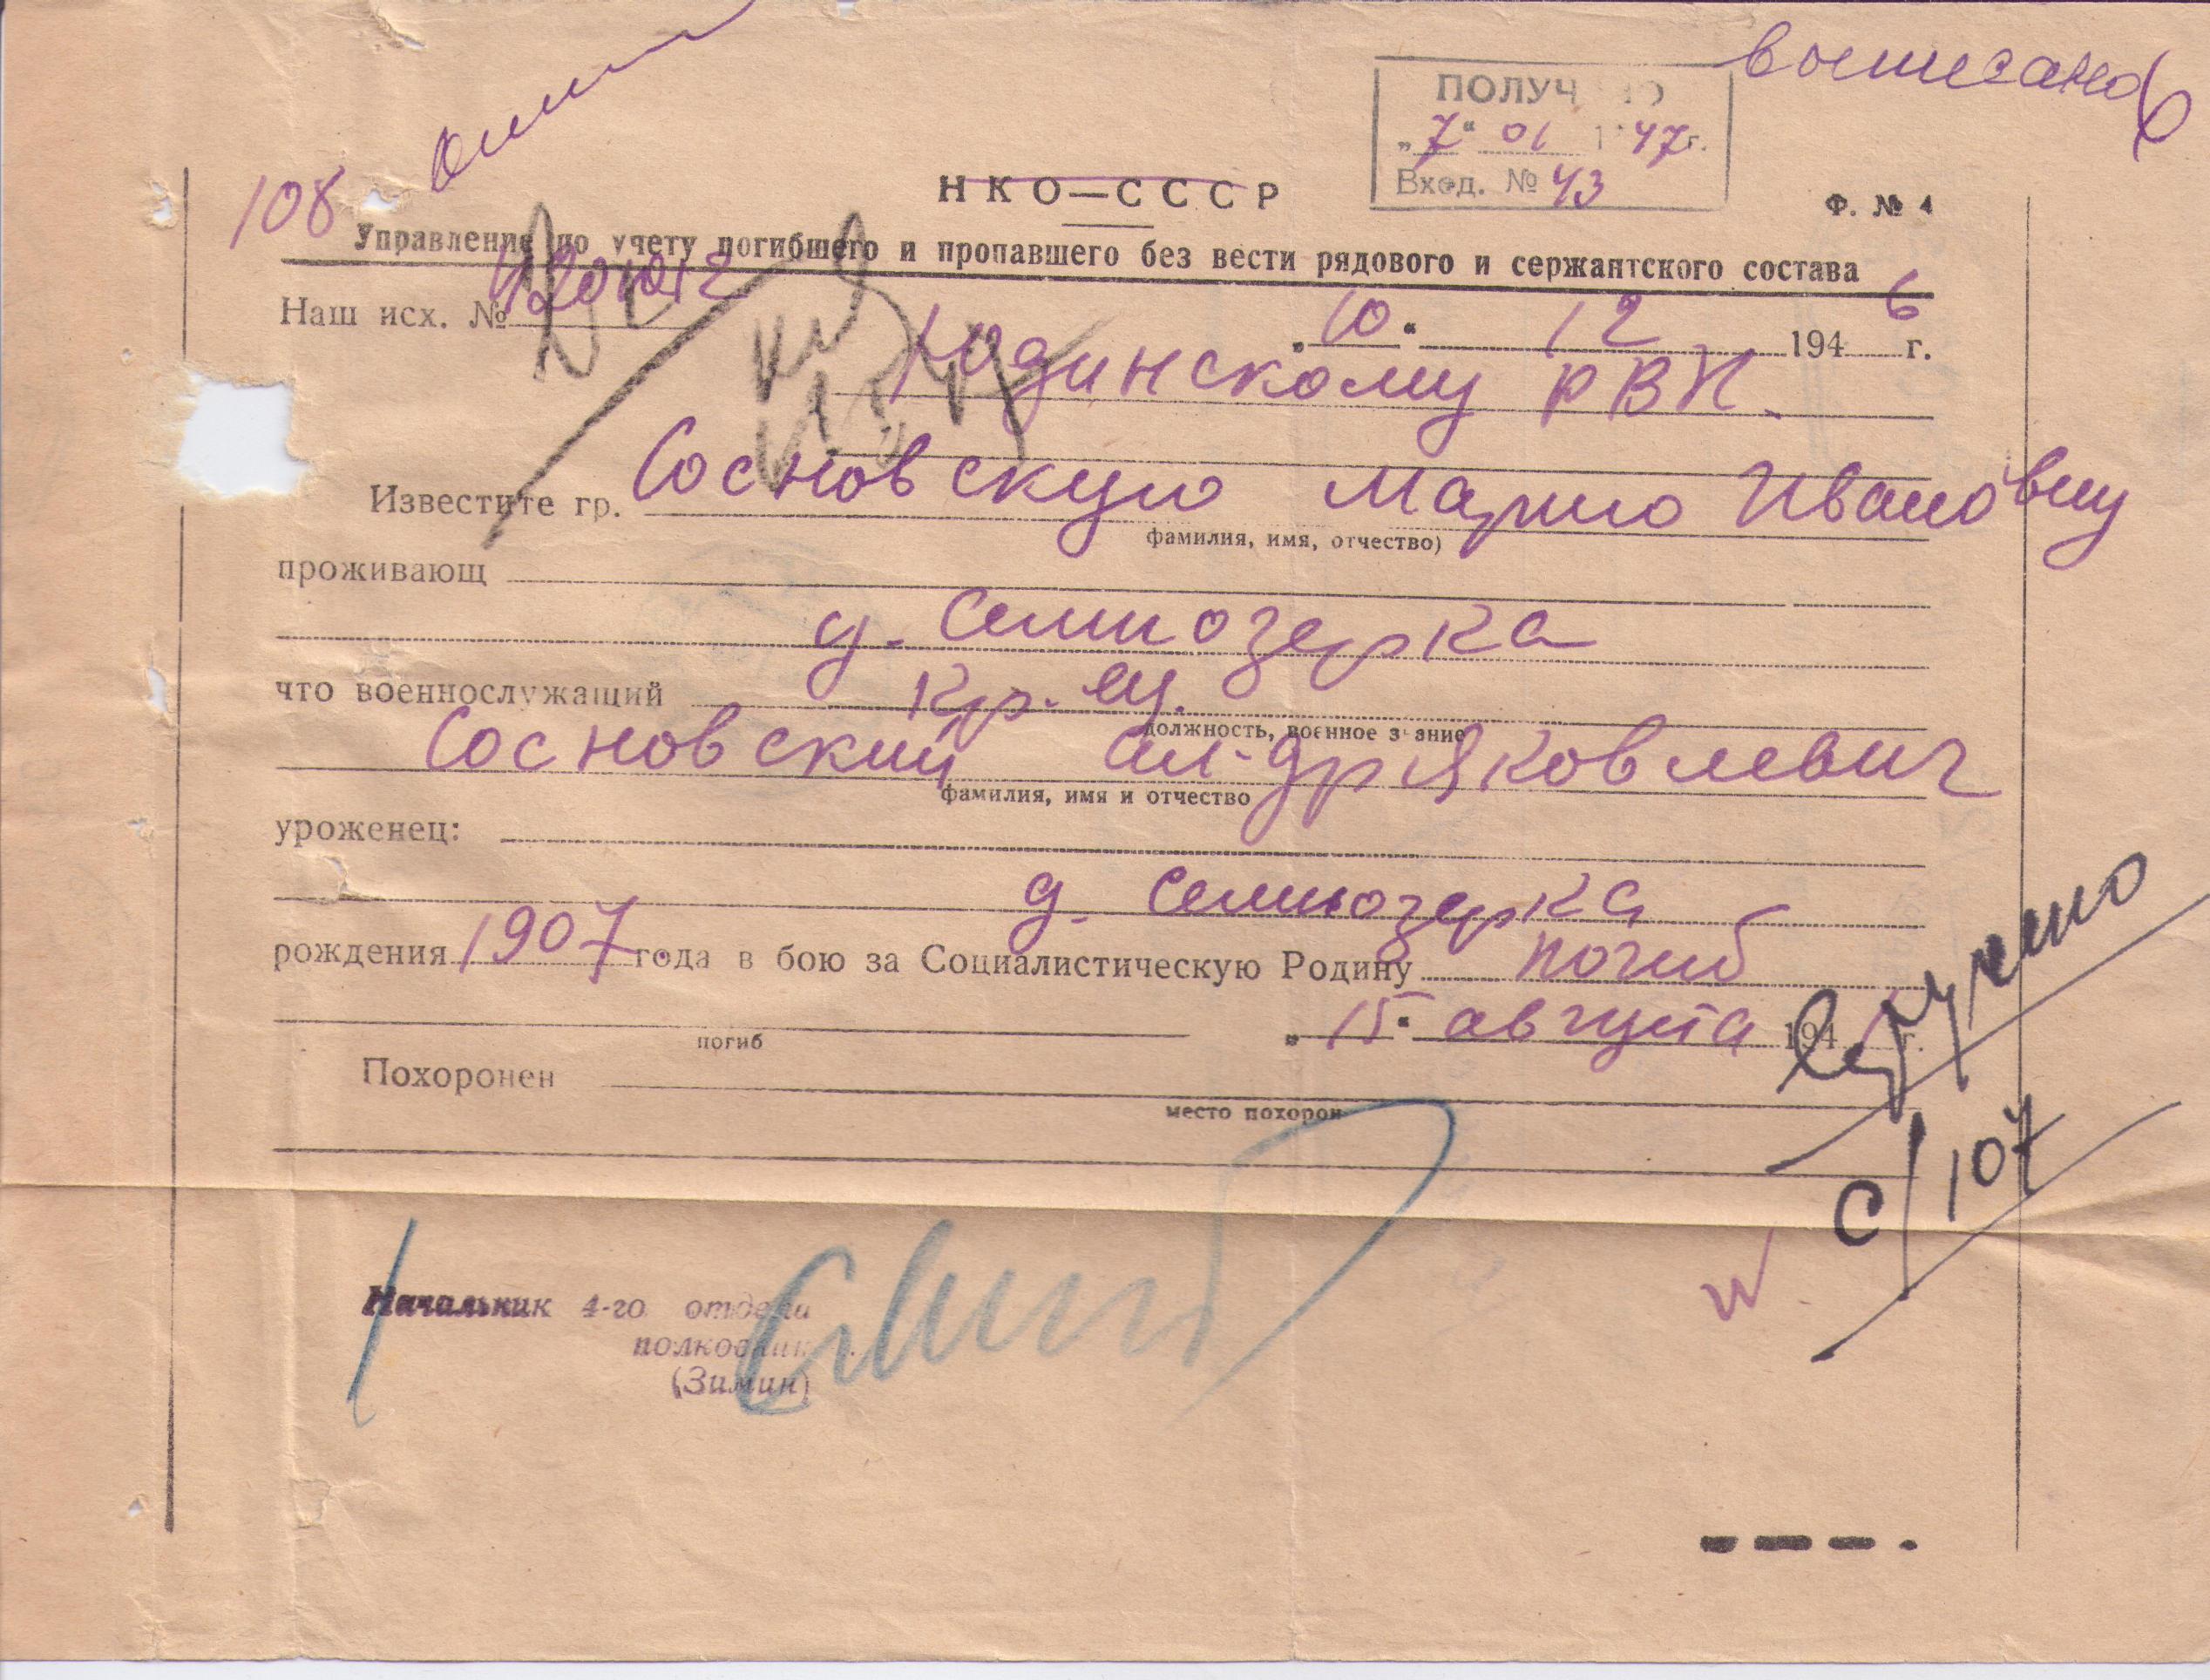 выписано
ПОЛУЧ О
„7" 01 1 47г.
Вход. № 43
108
НКО—СССР
Ф. № 4
Управление по учету погибшего и пропавшего без вести рядового и сержантского состава
Наш исх. №
„10" 12 1946 г.
Кодинскому РВК.
Известите гр. Сосновскую Марию Ивановну
фамилия, имя, отчество)
проживающ
д. Семиозерка
что военнослужащий кр-ец.
должность, военное звание
Сосновский Ал-др Яковлевич
фамилия, имя и отчество
уроженец:
д. Семиозерка
рождения 1907 года в бою за Социалистическую Родину погиб
„15" августа 194 г.
погиб
Похоронен
место похорон
вручено
с/107
Начальник 4-го отдела
полковник
(Зимин)